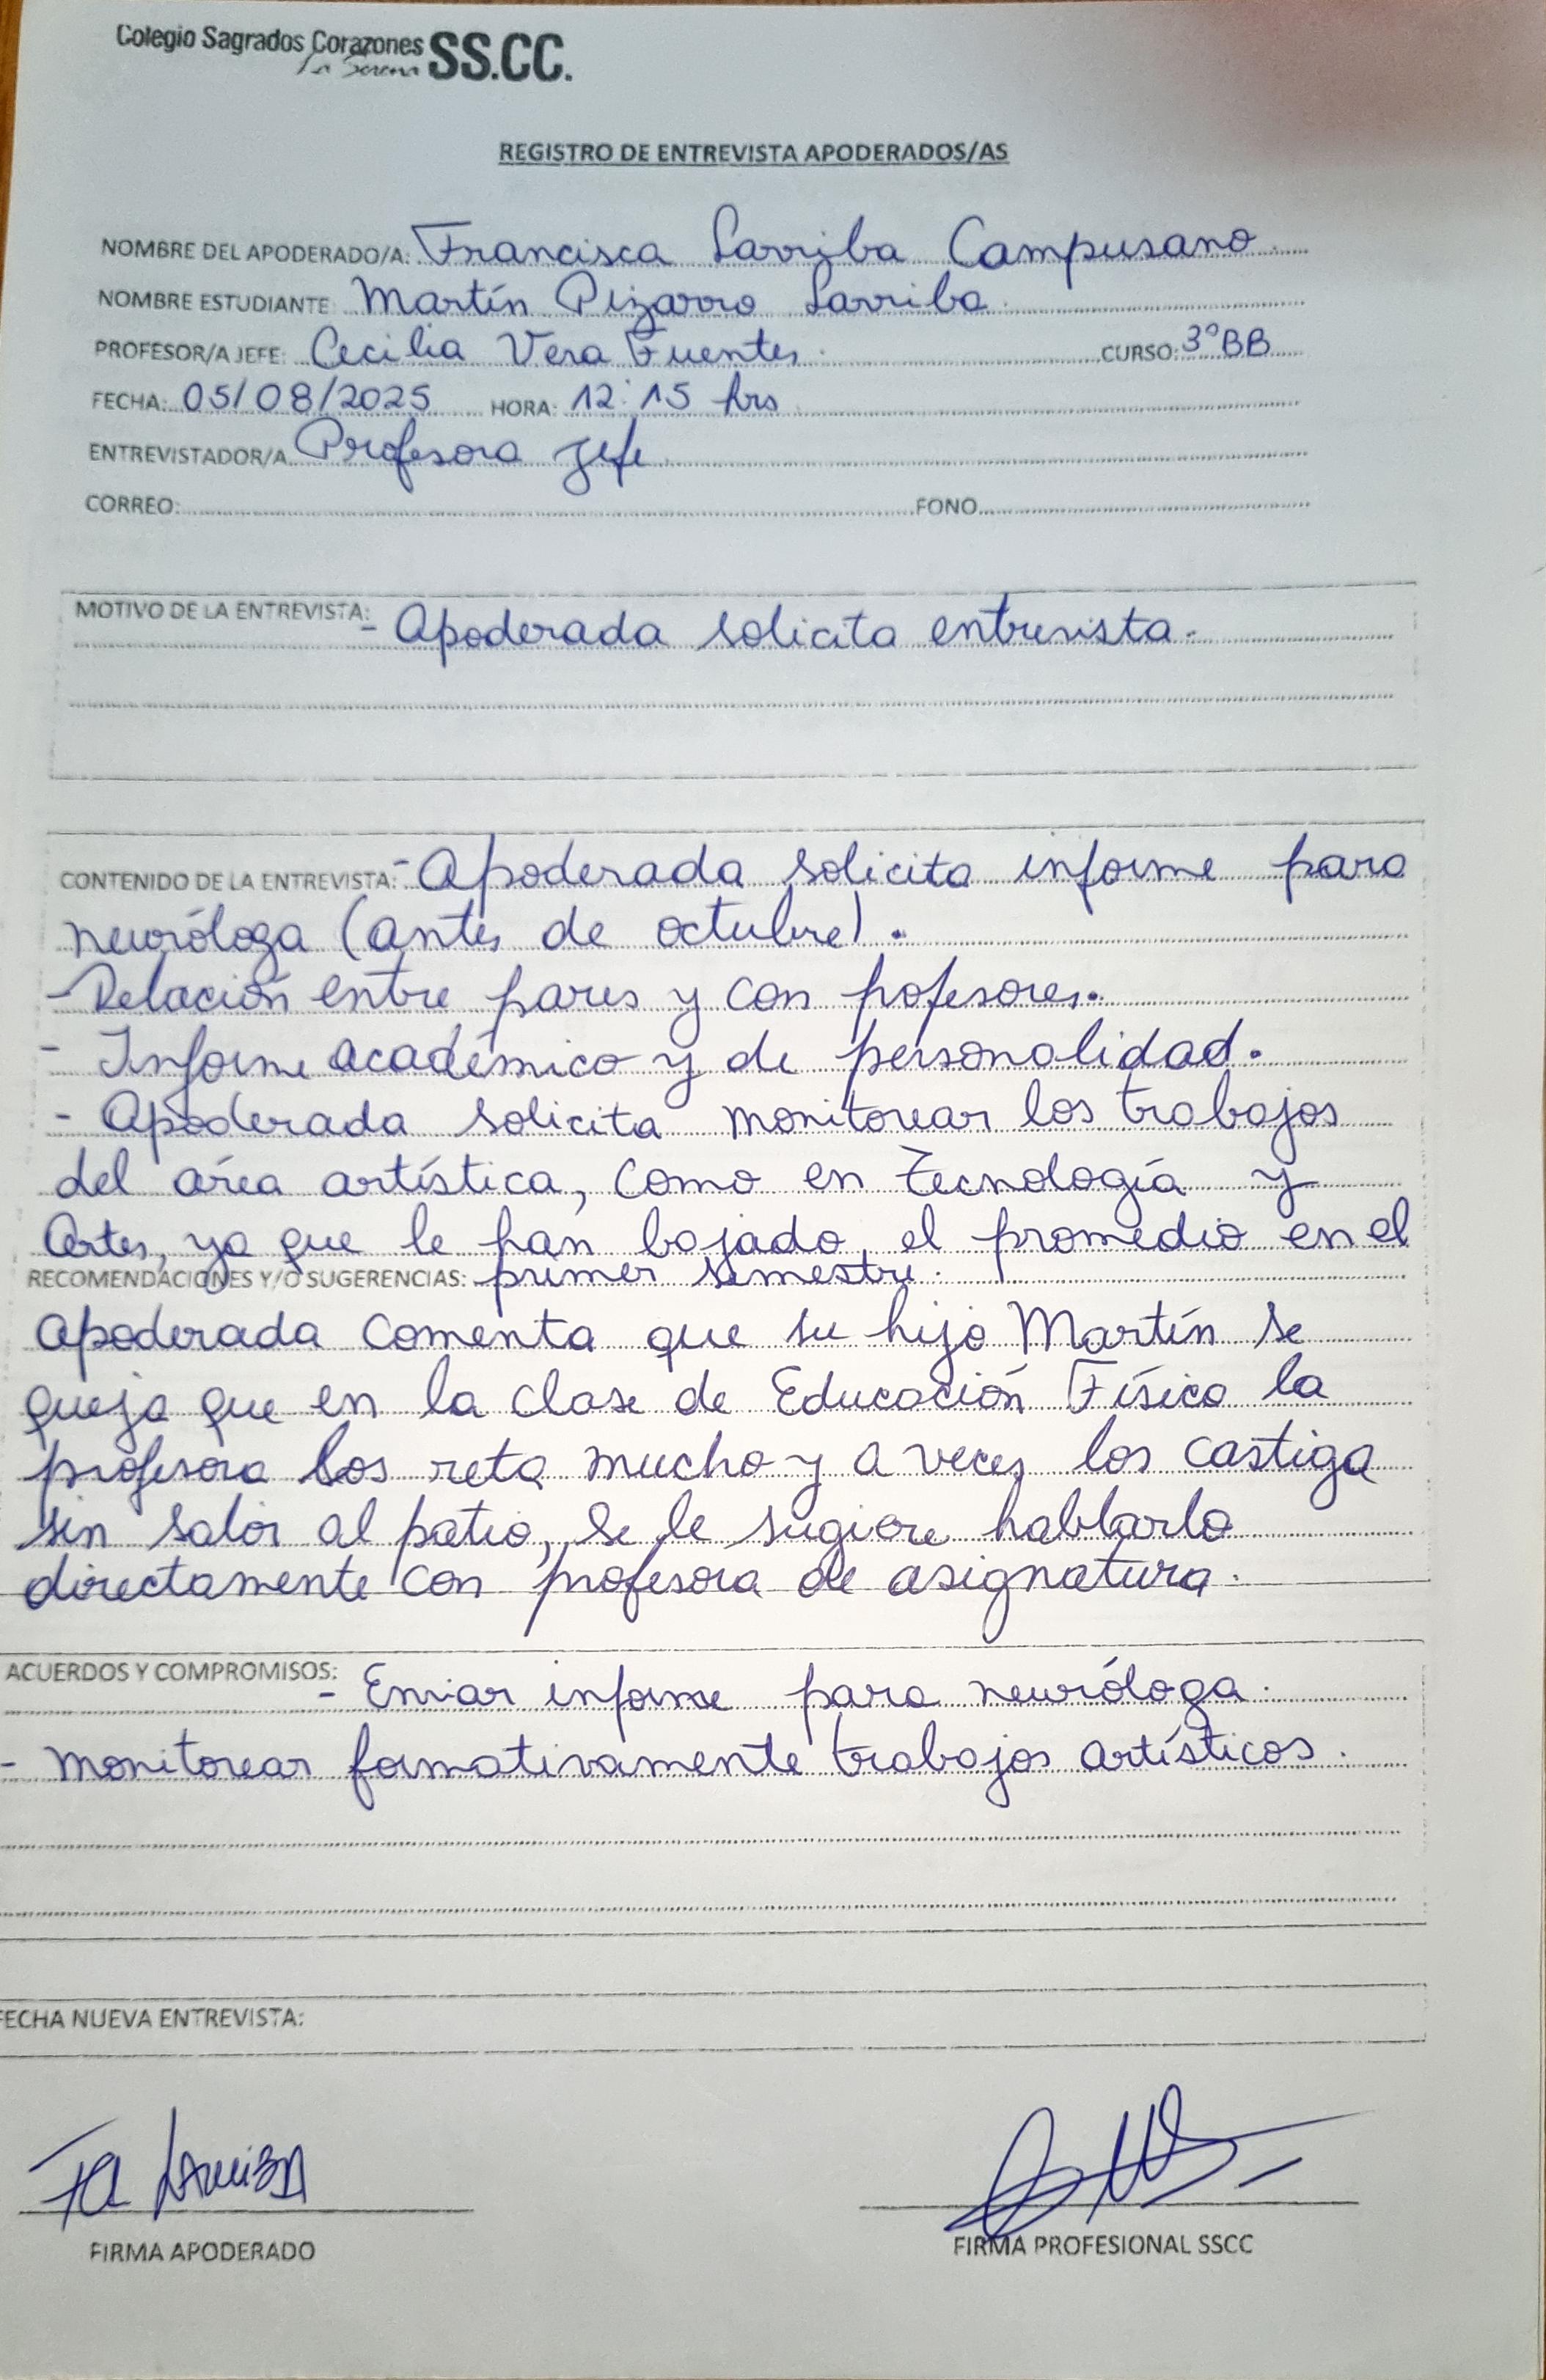 Colegio Sagrados Corazones SS.CC.
La Serena
REGISTRO DE ENTREVISTA APODERADOS/AS
NOMBRE DEL APODERADO/A: Francisca Larriba Campusano.
NOMBRE ESTUDIANTE: Martín Pizarro Larriba.
PROFESOR/A JEFE: Cecilia Vera Fuentes. CURSO: 3°BB
FECHA: 05/08/2025 HORA: 12:15 hrs
ENTREVISTADOR/A Profesora Jefe
CORREO: FONO
MOTIVO DE LA ENTREVISTA:
- Apoderada solicita entrevista.
CONTENIDO DE LA ENTREVISTA: - Apoderada solicita informe para
neuróloga (antes de octubre).
- Relación entre pares y con profesores.
- Informe académico y de personalidad.
- Apoderada solicita monitorear los trabajos
del área artística, como en Tecnología y
Artes, ya que le han bajado, el promedio en el
RECOMENDACIONES Y/O SUGERENCIAS: primer semestre.
Apoderada comenta que su hijo Martín se
queja que en la clase de Educación Física la
profesora los reta mucho y a veces los castiga
sin salir al patio, se le sugiere hablarlo
directamente con profesora de asignatura.
ACUERDOS Y COMPROMISOS:
- Enviar informe para neuróloga.
- Monitorear formativamente trabajos artísticos.
FECHA NUEVA ENTREVISTA:
Fca Larriba
FIRMA APODERADO FIRMA PROFESIONAL SSCC